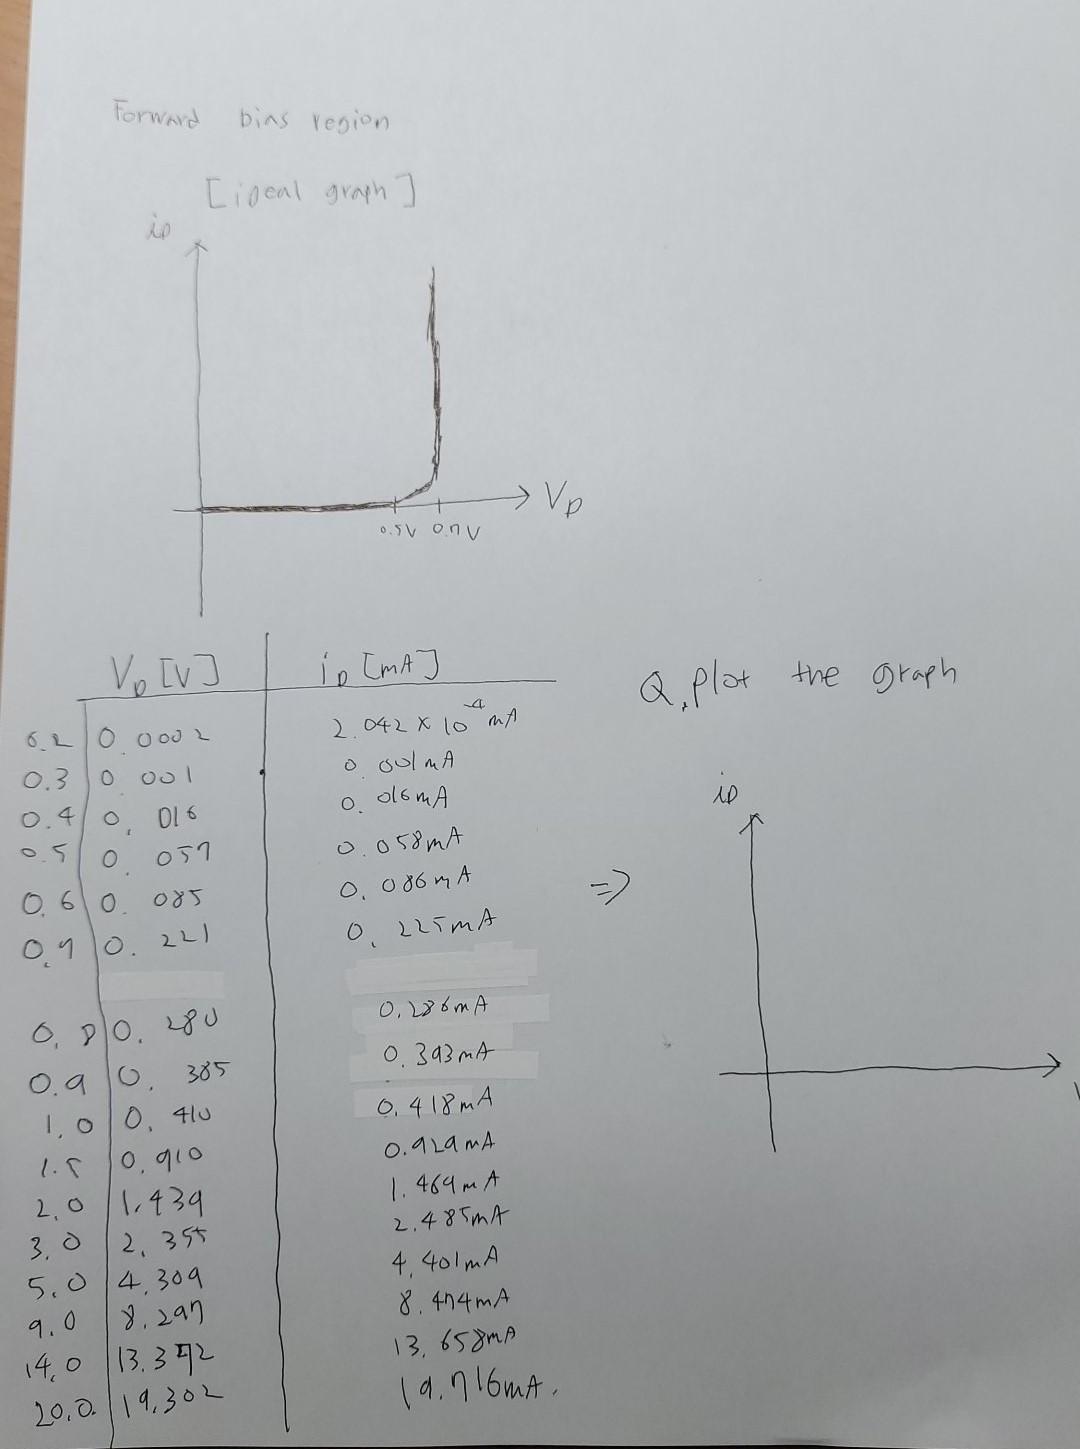 Forward bias region
[ideal graph]
iD
VD
0.5V 0.7V
VD [V] iD [mA]
Q. plot the graph
0.2 0.0002 2.042 × 10^-4 mA
0.3 0.001 0.001mA
0.4 0.016 0.016mA
0.5 0.057 0.058mA
0.6 0.085 0.086mA
0.7 0.221 0.225mA
⇒
iD
0.8 0.280 0.286mA
0.9 0.385 0.393mA
1.0 0.410 0.418mA
1.5 0.910 0.929mA
2.0 1.439 1.469mA
3.0 2.355 2.485mA
5.0 4.309 4.401mA
9.0 8.297 8.474mA
14.0 13.372 13.658mA
20.0. 19.302 19.716mA.